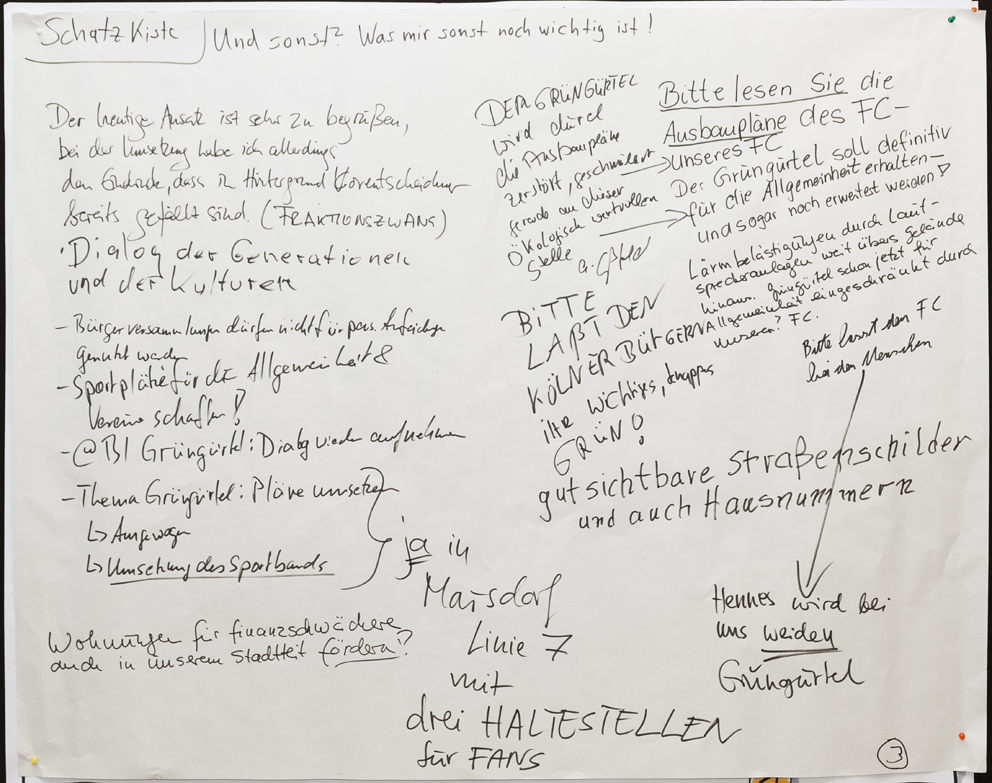 Schatzkiste
Und sonst? Was mir sonst noch wichtig ist!
Der heutige Ansatz ist sehr zu begrüßen,
bei der Umsetzung habe ich allerdings
den Eindruck, dass im Hintergrund Vorentscheidungen
bereits gefällt sind. (FRAKTIONSZWANG)
• Dialog der Generationen
und der Kulturen
- Bürgerversammlungen dürfen nicht für pers.
genutzt werden
- Sportplätze für die Allgemeinheit &
Vereine schaffen!
- @BI Grüngürtel: Dialog wieder aufnehmen
- Thema Grüngürtel: Pläne umsetzen
↳ Ausgewogen
↳ Umsetzung des Sportbands
ja in
Marsdorf
Linie 7
mit
drei HALTESTELLEN
für FANS
Wohnungen für finanzschwächere
auch in unserem Stadtteil fördern?
DER GRÜNGÜRTEL
wird durch
die Ausbaupläne
zerstört, geschmälert
gerade an dieser
Ökologisch wertvollen
Stelle
Bitte lesen Sie die
Ausbaupläne des FC –
unseres FC
Der Grüngürtel soll definitiv
für die Allgemeinheit erhalten –
und sogar noch erweitert werden!
Lärmbelästigungen durch Laut-
sprecheranlagen weit übers Gelände
hinaus. Grüngürtel schon jetzt für
Allgemeinheit eingeschränkt durch
unseren? FC.
BITTE
LAßT DEN
KÖLNER BÜRGERN
ihr wichtiges, knappes
GRÜN!
Bitte lasst den FC
bei den Menschen
gut sichtbare Straßenschilder
und auch Hausnummern
Hennes wird bei
uns weiden
Grüngürtel
3